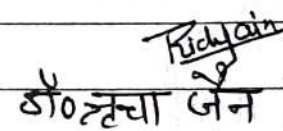 Richa Jain
डॉ० ऋचा जैन